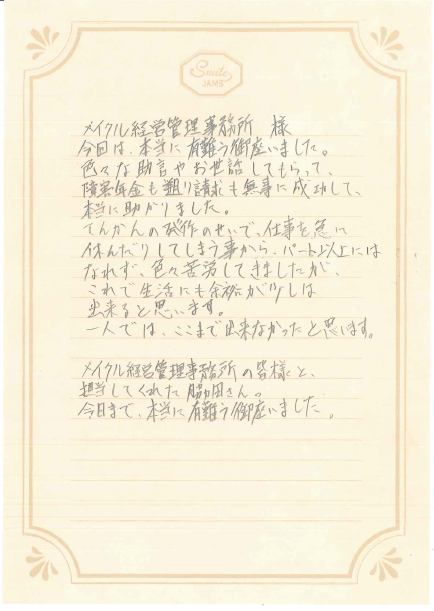 Smile
JAMS
メイクル経営管理事務所 様
今回は、本当に有難う御座いました。
色々な助言やお世話してもらって、
障害年金も遡り請求も無事に成功して、
本当に助かりました。
てんかんの発作のせいで、仕事を急に
休んだりしてしまう事から、パート以上には
なれず、色々苦労してきましたが、
これで生活にも余裕が少しは
出来ると思います。
一人では、ここまで出来なかったと思います。
メイクル経営管理事務所の皆様と、
担当してくれた脇田さん。
今日まで、本当に有難う御座いました。